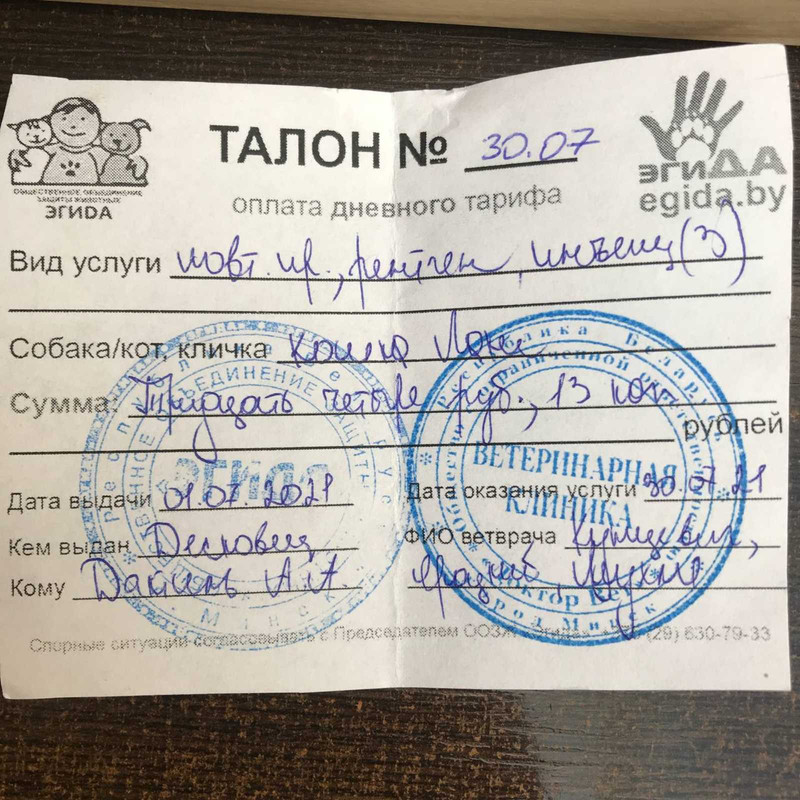 ТАЛОН № 30.07
оплата дневного тарифа
ОБЩЕСТВЕННОЕ ОБЪЕДИНЕНИЕ
ЗАЩИТЫ ЖИВОТНЫХ
ЭГИДА
эгиДА
egida.by
Вид услуги повт. пр., рентген, инъекц (3)
Собака/кот, кличка кошка
Сумма: Тридцать четыре руб., 13 коп.
рублей
Дата выдачи 01.07.2021
Дата оказания услуги 30.07.21
Кем выдан
ФИО ветврача
Кому А.А.
Спорные ситуации согласовывать с Председателем ООЗЖ «Эгида» (29) 630-79-33
ЭГИДА
Минск
Республика Беларусь
ВЕТЕРИНАРНАЯ
КЛИНИКА
город Минск